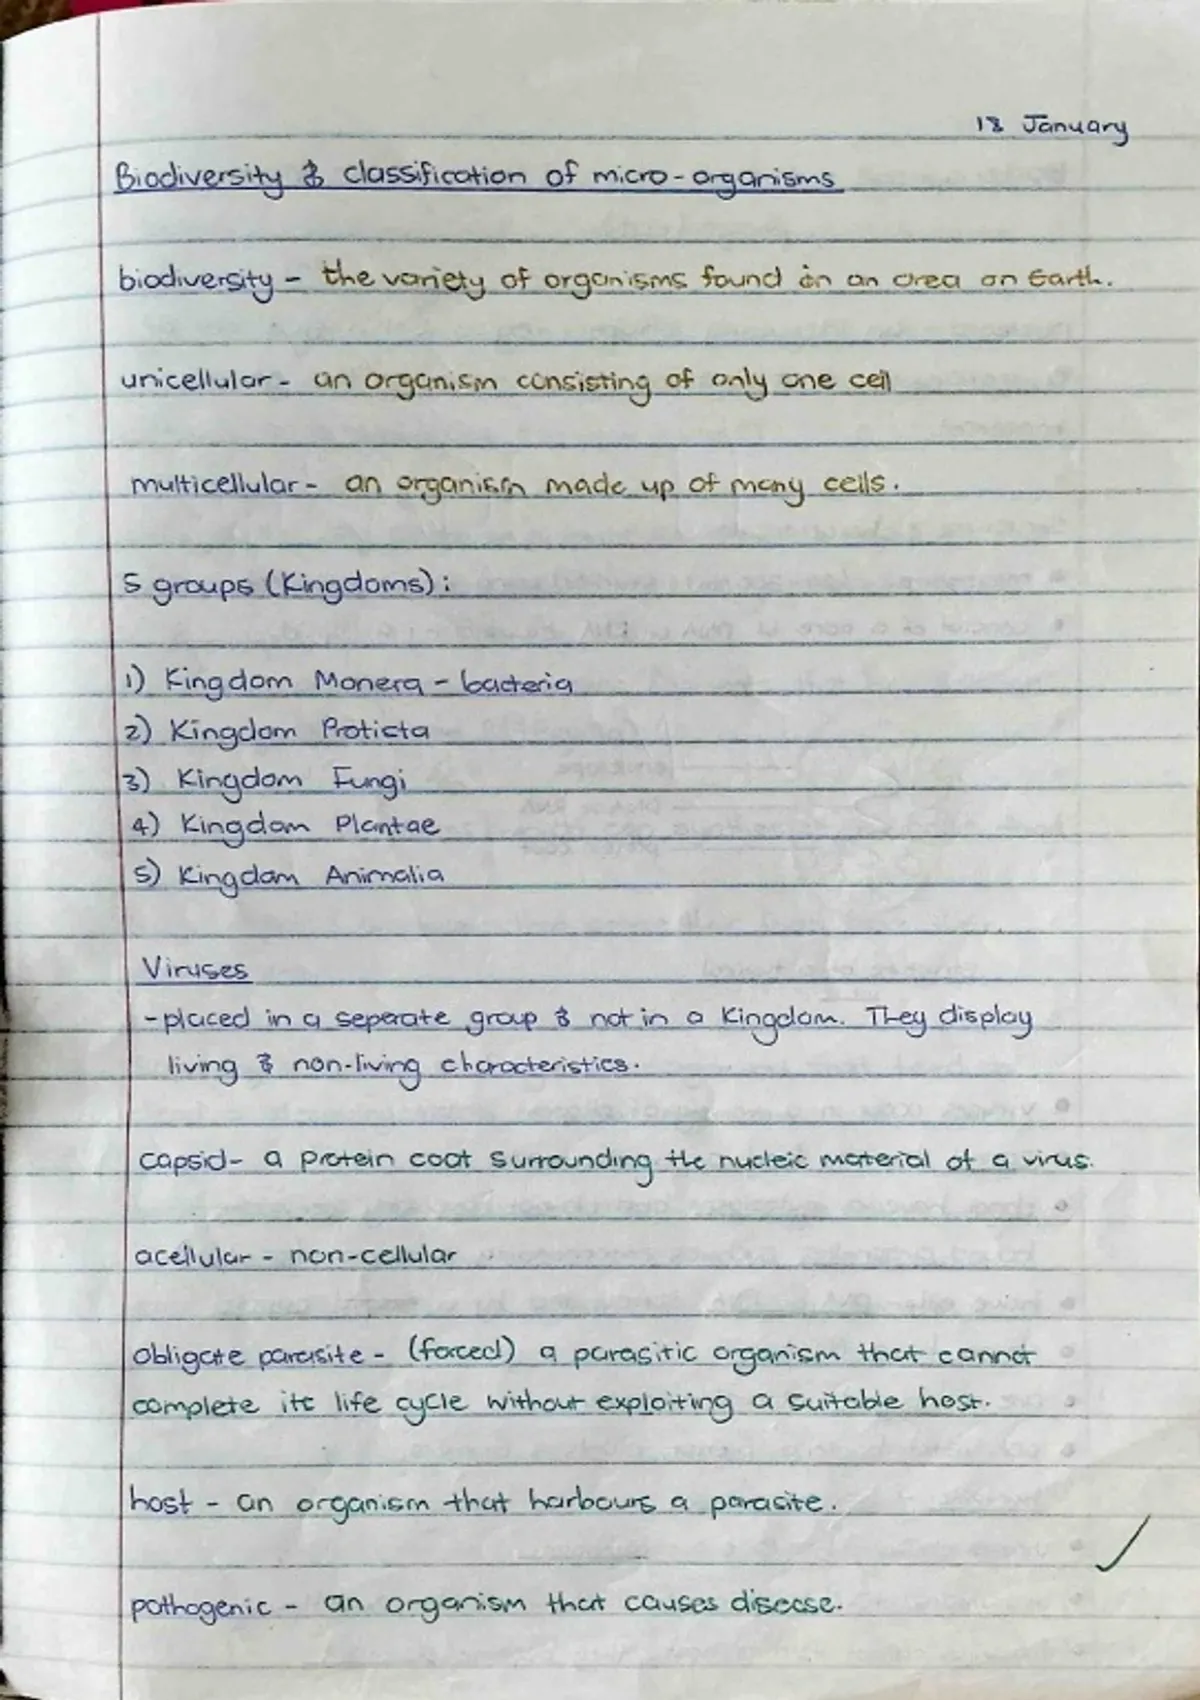 18 January
Biodiversity & classification of micro-organisms
biodiversity - the variety of organisms found in an area on Earth.
unicellular - an organism consisting of only one cell
multicellular - an organism made up of many cells.
5 groups (Kingdoms):
1) Kingdom Monera - bacteria
2) Kingdom Proticta
3) Kingdom Fungi
4) Kingdom Plantae
5) Kingdom Animalia
Viruses
- placed in a seperate group & not in a Kingdom. They display
living & non-living characteristics.
capsid - a protein coat surrounding the nucleic material of a virus.
acellular - non-cellular
obligate parasite - (forced) a parasitic organism that cannot
complete its life cycle without exploiting a suitable host.
host - an organism that harbours a parasite.
pathogenic - an organism that causes disease.